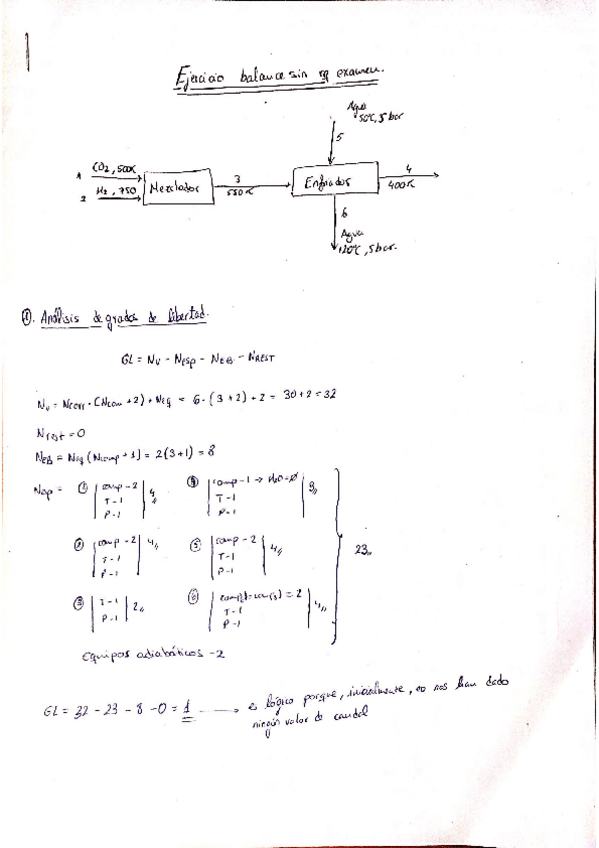 Ejercicio balance sin rq examen.
Agua
50ºC, 5 bar
5
1 CO2, 500K
2 H2, 750
Mezclador
3
550K
Enfriador
4
400K
6
Agua
120ºC, 5 bar.
①. Análisis de grados de libertad.
GL = Nv - Nesp - NEB - NREST
Nv = Ncorr · (Ncom + 2) + Neq = 6 · (3 + 2) + 2 = 30 + 2 = 32
Nrest = 0
NEB = Neq (Ncomp + 1) = 2(3+1) = 8
Nesp = ① comp - 2
T - 1
P - 1
4,,
④ comp - 1 → H2O = Ø
T - 1
P - 1
3,,
② comp - 2
T - 1
P - 1
4,,
⑤ comp - 2
T - 1
P - 1
4,,
23,,
③ T - 1
P - 1
2,,
⑥ = 2
T - 1
P - 1
4,,
Equipos adiabáticos - 2
GL = 32 - 23 - 8 - 0 = 1 → es lógico porque, inicialmente, no nos han dado
ningún valor de caudal